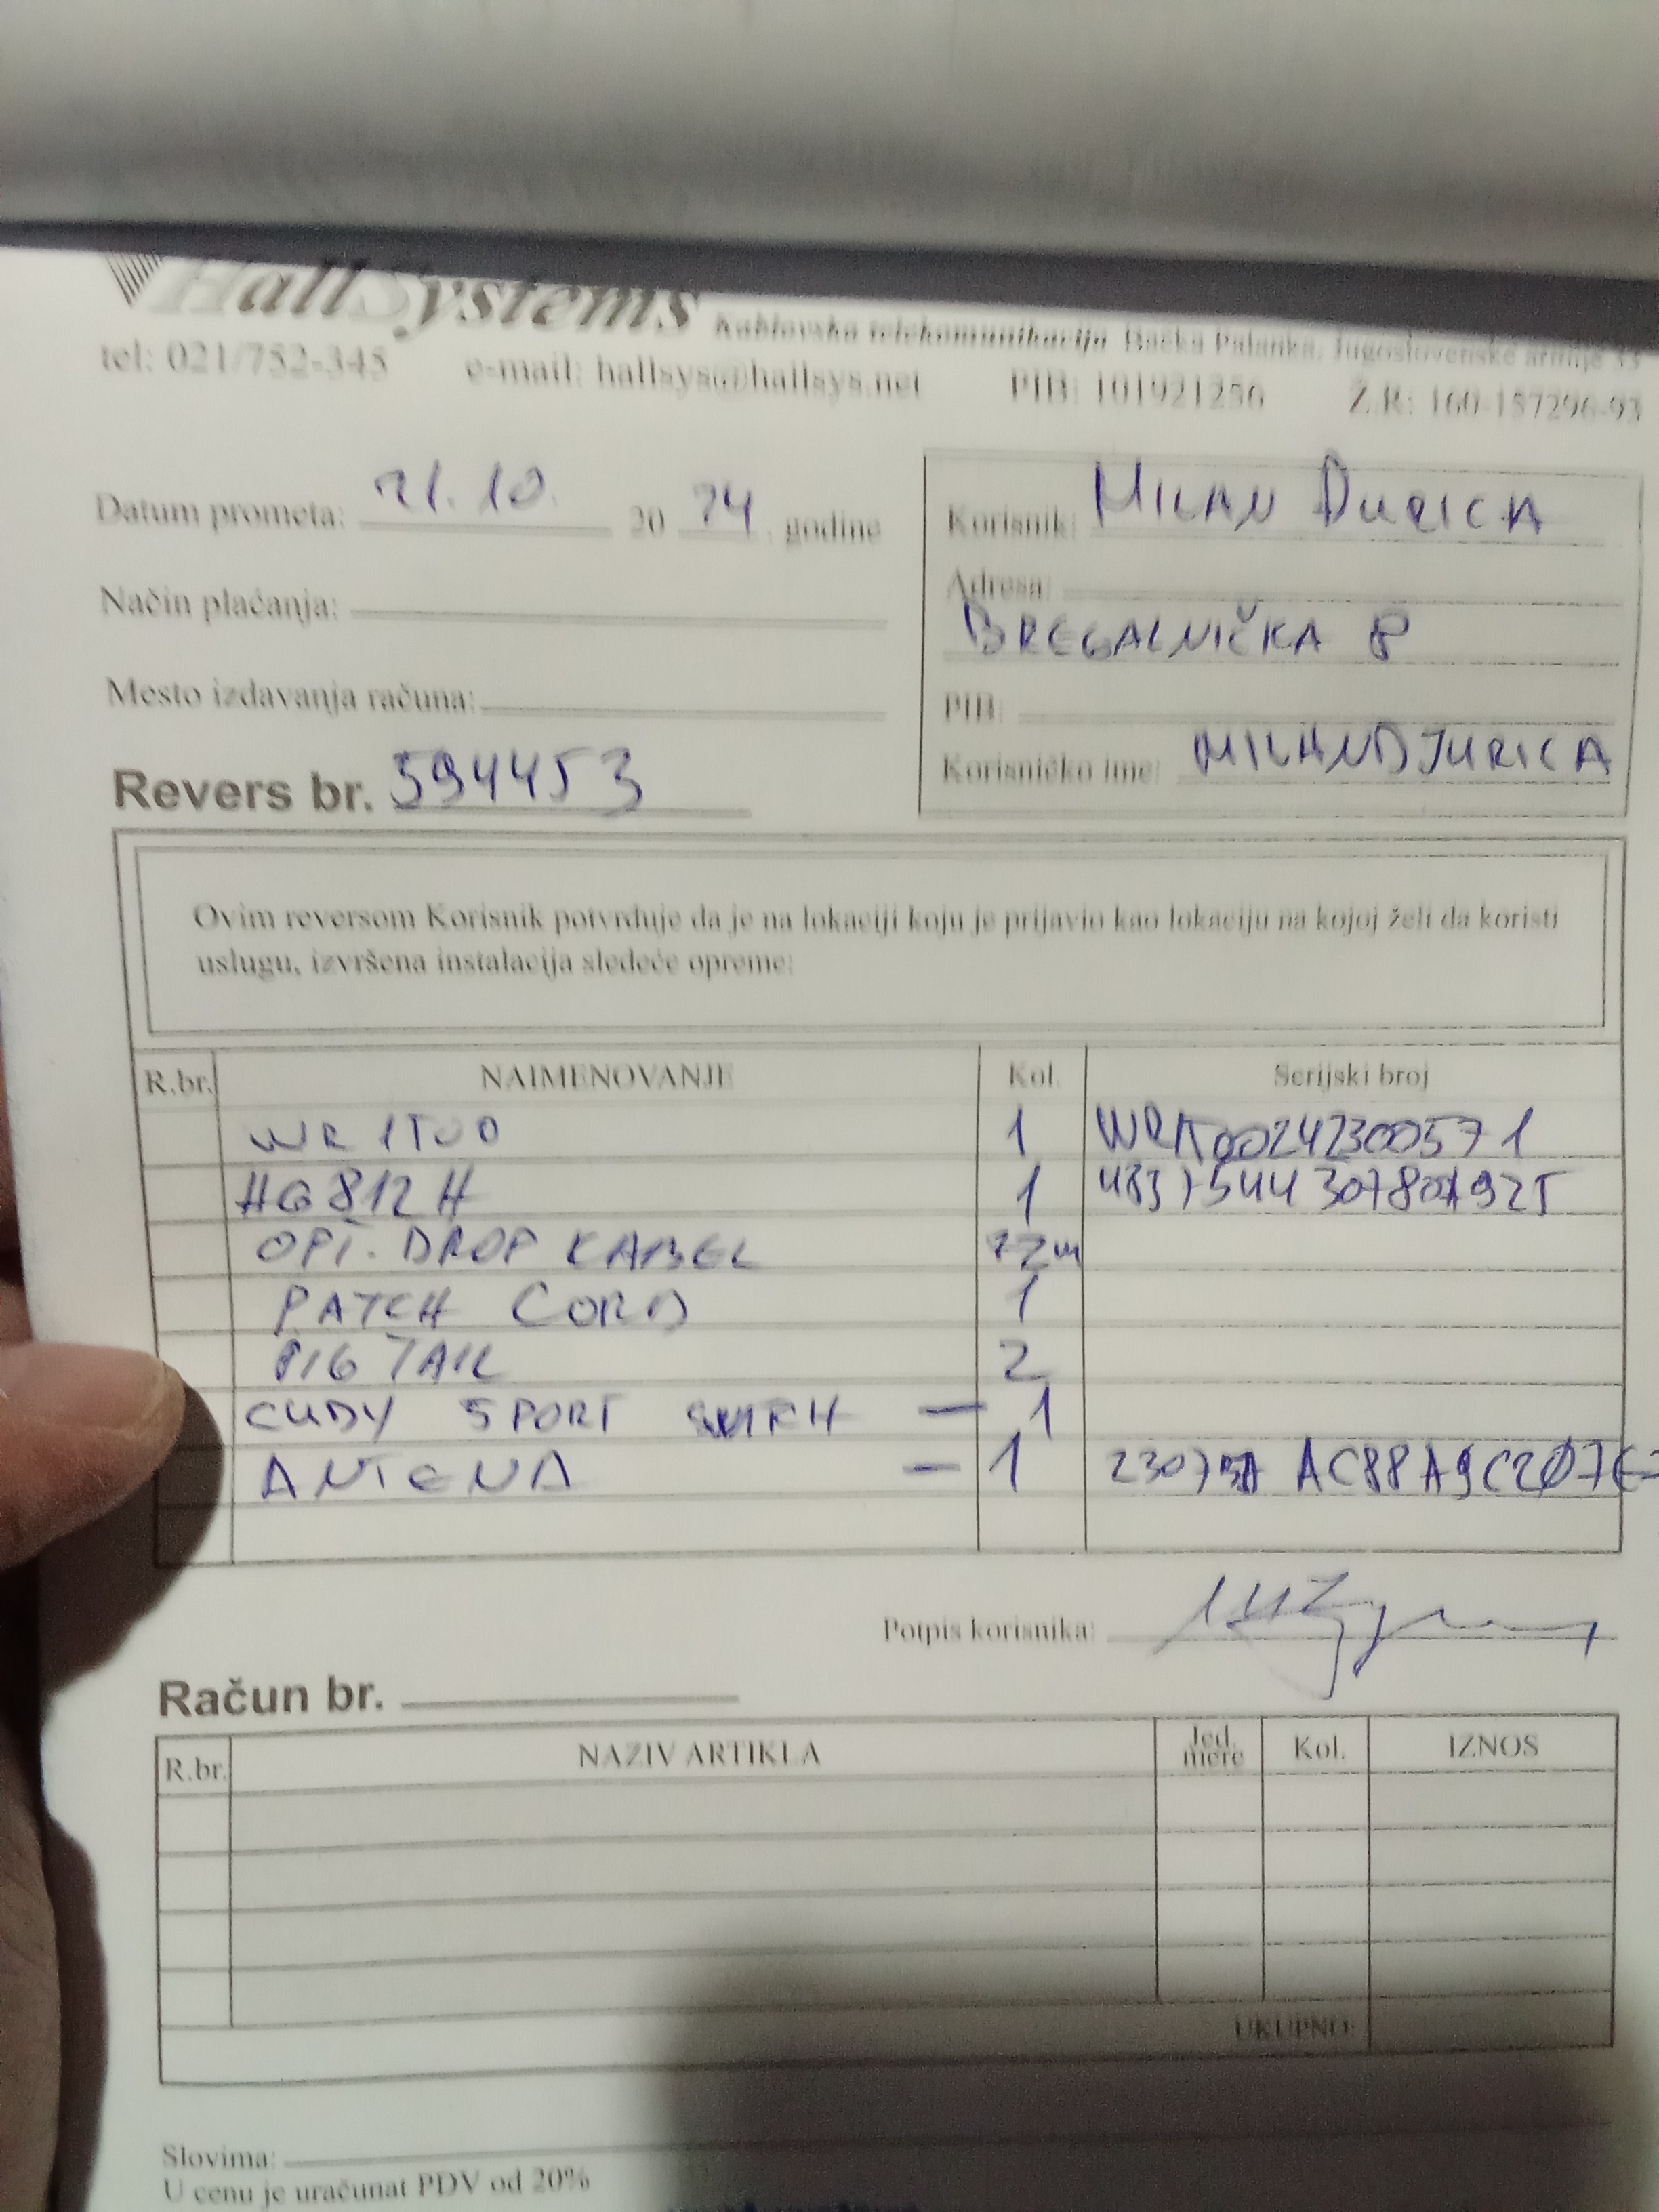 HallSystems Kablovska telekomunikacija Bačka Palanka, Jugoslovenske armije
tel: 021/752-345 e-mail: hallsys@hallsys.net PIB: 101921256 Ž.R: 160-157296-93
Datum prometa: 21.10. 20 24 godine
Korisnik: MILAN ĐURICA
Način plaćanja:
Adresa:
BREGALNIČKA 8
Mesto izdavanja računa:
PIB:
Korisničko ime: MILANDJURICA
Revers br. 594453
Ovim reversom Korisnik potvrđuje da je na lokaciji koju je prijavio kao lokaciju na kojoj želi da koristi
uslugu, izvršena instalacija sledeće opreme:
R.br. NAIMENOVANJE Kol. Serijski broj
WR 1500 1
HG812H 1
OPT. DROP KABEL
PATCH CORD 1
PIG TAIL 2
CUDY 5 PORT - 1
ANTENA - 1
Potpis korisnika:
Račun br.
R.br. NAZIV ARTIKLA Jed. mere Kol. IZNOS
UKUPNO:
Slovima:
U cenu je uračunat PDV od 20%